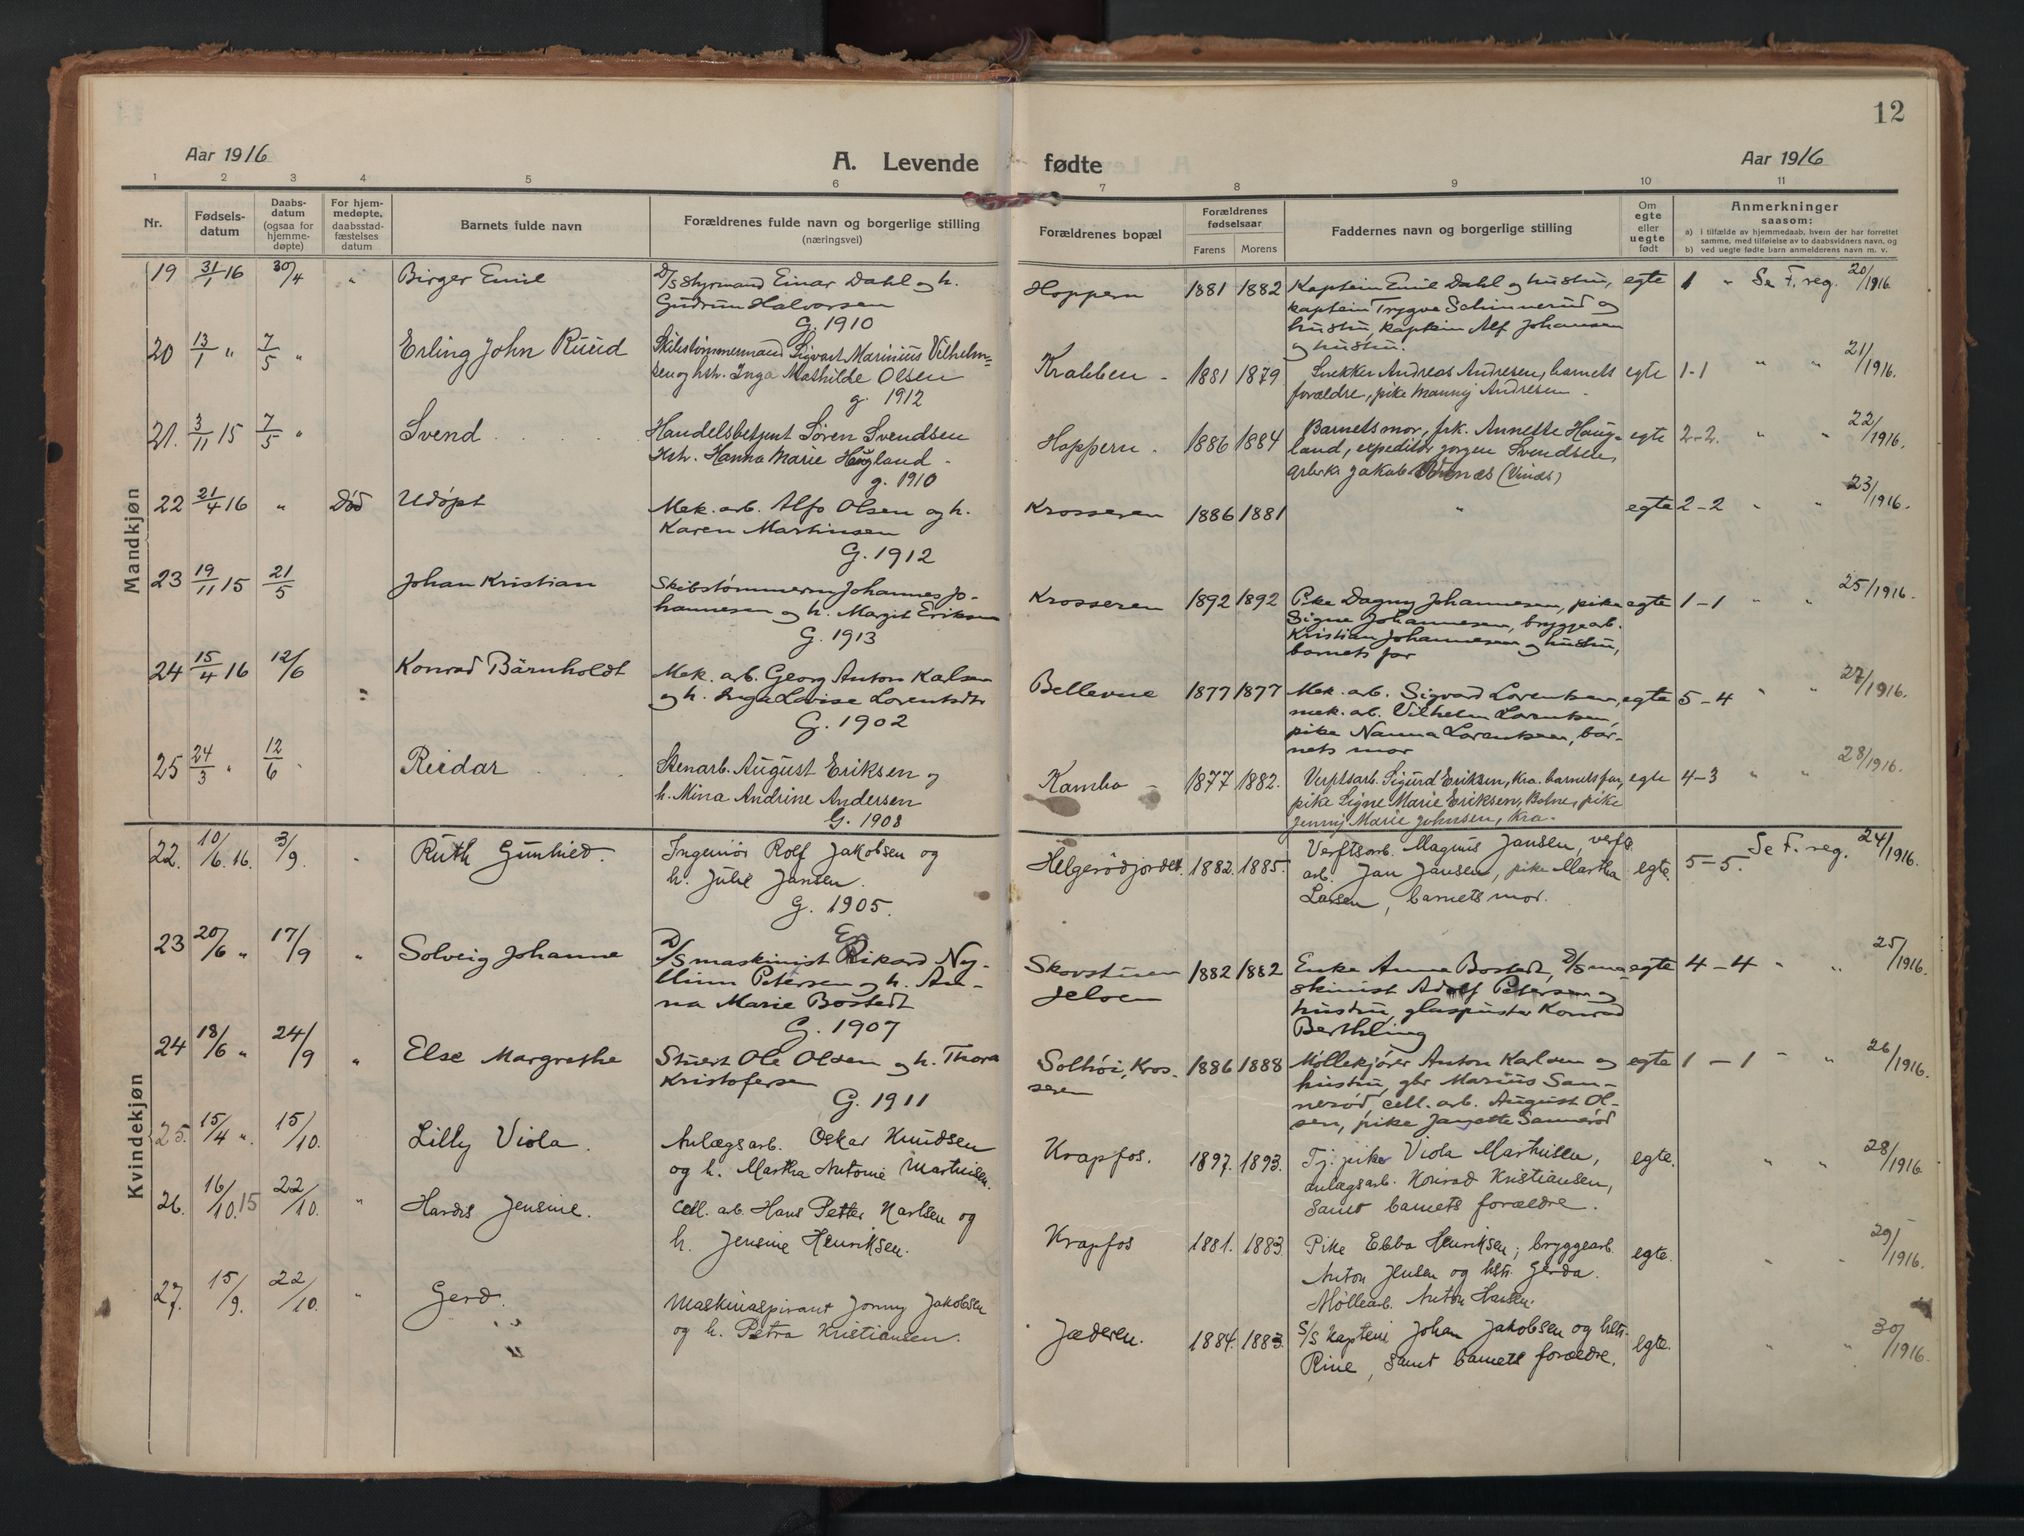 12
Aar 1916 A. Levende fødte Aar 1916
1 2 3 4 5 6 7 8 9 10 11
Nr. Fødsels-datum Daabs-datum (ogsaa for hjemme-døpte) For hjem-medøpte, daabsstad-fæstelses datum Barnets fulde navn Forældrenes fulde navn og borgerlige stilling (næringsvei) Forældrenes bopæl Forældrenes fødselsaar Farens Morens Faddernes navn og borgerlige stilling Om egte eller uegte født Anmerkninger saasom:
a) i tilfælde av hjemmedaab, hvem der har forrettet samme, med tilføielse av to daabsvidners navn, og
b) ved uegte fødte barn anmelderens navn m. v.
Mandkjøn
19 31/1 16 30/4 " Birger Emil D/S styrmand Einar Dahl og h. Hoppern 1881 1882 Kaptein Emil Dahl og hustru, egte 1 " Se F. reg. 20/1916
Gudrun Halvorsen kaptein Trygve Schinnerud og
G. 1910 hustru, kaptein Alf Johansen
og hustru.
20 13/1 " 7/5 " Erling John Ruud Skibstømmermand Sigvart Marinius Vilhelm- Krabben - 1881 1879 Snekker Andreas Andresen, barnets egte 1-1 " " 21/1916.
sen og hstr. Inga Mathilde Olsen forældre, pike Manny Andresen -
g. 1912
21. 3/11 15 7/5 " Svend Handelsbetjent Søren Svendsen Hoppern. 1886 1884 Barnets mor, frk. Annette Haug- egte 2-2. " " 22/1916.
Hstr. Hanna Marie Haugland - land, expeditør Jørgen Svendsen,
g. 1910 arberk. Jakob (Vinæs)
22 21/4 16 " Død Udøpt Mek. arb. Alfo Olsen og h. Krosseren 1886 1881 " egte 2-2 " " 23/1916.
Karen Martinsen
G. 1912
23 19/11 15 21/5 Johan Kristian Skibstømmerm Johannes Jo- Krosseren 1892 1892 Pike Dagny Johannesen, pike egte 1-1 " " 25/1916.
hannesen og h. Margit Eriksen Signe Johannesen, bryggearb.
G. 1913 Kristian Johannesen og hustru,
barnets far
24 15/4 16 12/6 " Konrad Bärnholdt Mek. arb. Georg Anton Karlsen Bellevue 1877 1877 Mek. arb. Sigvard Lorentsen, egte 5-4 " " 27/1916.
og h. Inga Lovise Lorentsdtr mek. arb. Vilhelm Lorentsen,
G. 1902 pike Nanna Lorentsen, bar-
nets mor
25 24/3 " 12/6 " Reidar Stenarb. August Eriksen og Kambo - 1877 1882. Verftsarb. Sigurd Eriksen, Kra. barnets far, egte 4-3 " " 28/1916.
h. Mina Andrine Andersen pike Signe Marie Eriksen, Botne, pike
G. 1908 Jenny Marie Johnsen, Kra.
Kvindekjøn
22. 10/6 16. 3/9. " Ruth Gunhild. Ingeniør Rolf Jakobsen og Helgerødjordet. 1882. 1885. Verftsarb. Magnus Jansen, verfts. egte. 5-5. Se F. reg. 24/1916.
h. Julie Jansen. arb. Jan Jansen, pike Martha
G. 1905. Larsen, barnets mor.
23 20/6 " 17/9 " Solveig Johanne D/S maskinist Rikard Ny- Skovstuen 1882 1882 Enke Anna Bostedt, D/S ma- egte 4-4 " " 25/1916.
Petersen og h. An- Jeløen skinist Adolf Petersen og
na Marie Bostedt hustru, glaspuster Konrad
G. 1907 Berthling
24 18/6 " 24/9 " Else Margrethe Stuert Ole Olsen og h. Thora Solhøi, Kros- 1886 1888 Møllekjører Anton Karlsen og egte 1-1 " " 26/1916.
Kristofersen seren hustru, gbr Marius San-
G. 1911 nerød, cell. arb. August Ol-
sen, pike Sannerød
25. 15/4 ". 15/10. Lilly Viola. Anlægsarb. Oskar Knudsen Krapfos. 1897. 1893. Tj. pike Viola Mathilde, egte. " " 28/1916
og h. Martha Antonie Martinsen. anlægsarb. Konrad Kristiansen,
samt barnets forældre.
26. 16/10. 15 22/10. " Hardis Jensine. Cell. arb. Hans Petter Karlsen og Krapfos 1881. 1883. Pike Ebba Henriksen; bryggearb. egte. " " 29/1916.
h. Jensine Henriksen. Anton Jensen og hstr. Gerda.
Møllearb. Anton Hansen.
27. 15/9. 22/10. " Gerd. Maskinaspirant Jonny Jakobsen Jædesen. 1884. 1883. S/S kaptein Johan Jakobsen og hstr. egte. " " 30/1916.
og h. Petra Kristiansen. Rine, samt barnets forældre.